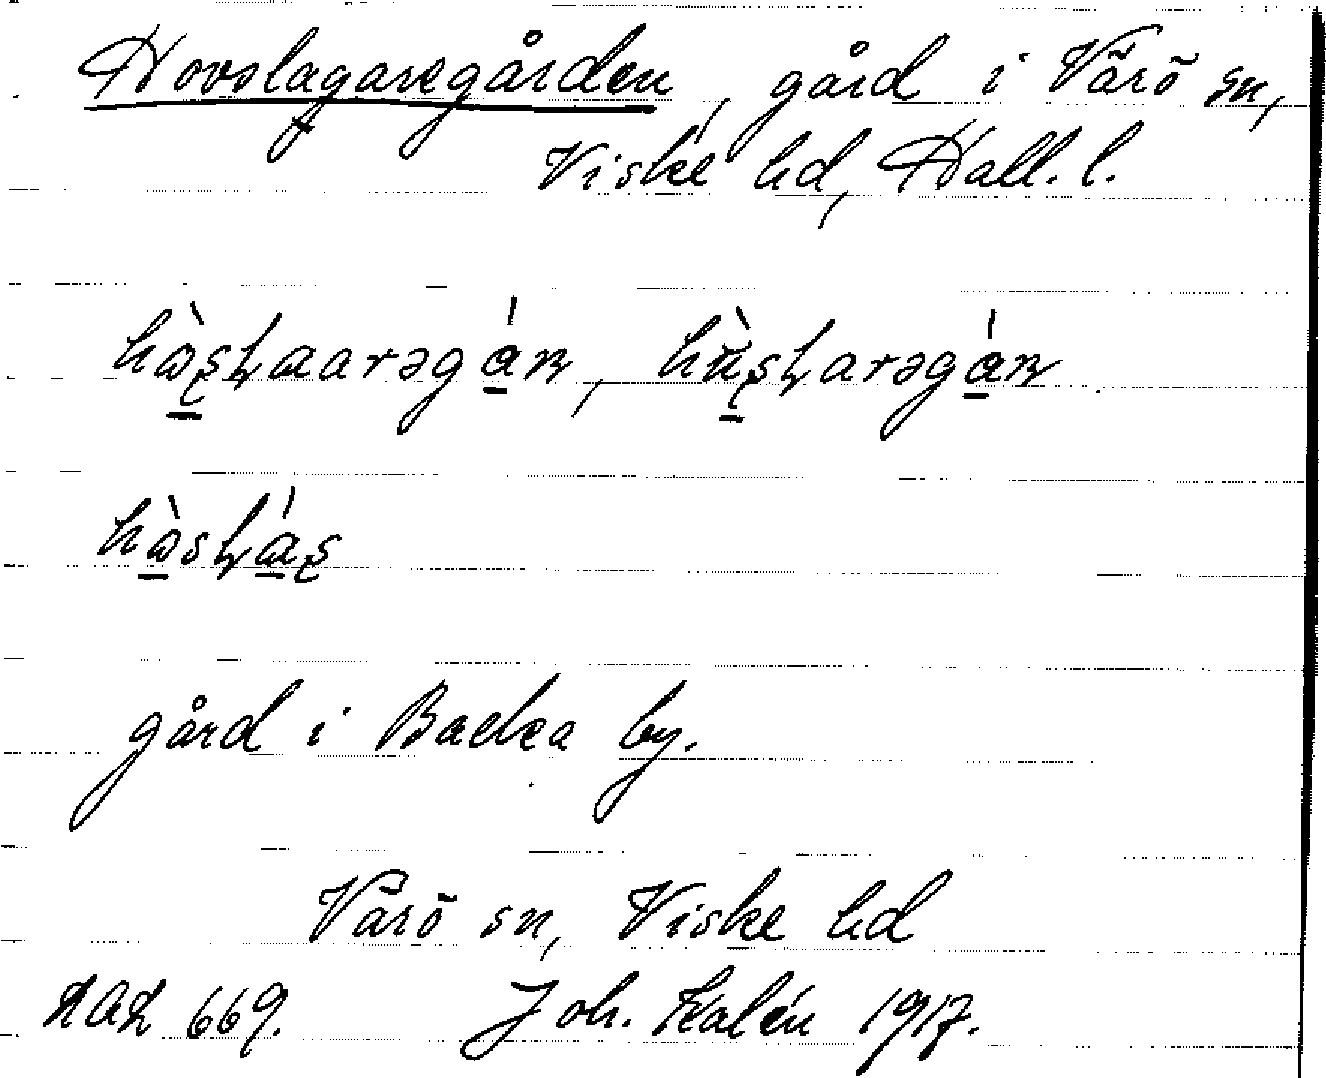 Hovslagaregården, gård i Värö sn,
Viske hd, Hall. l.
gård i Backa by.
Värö sn, Viske hd
669. Joh. Kalén 1917.